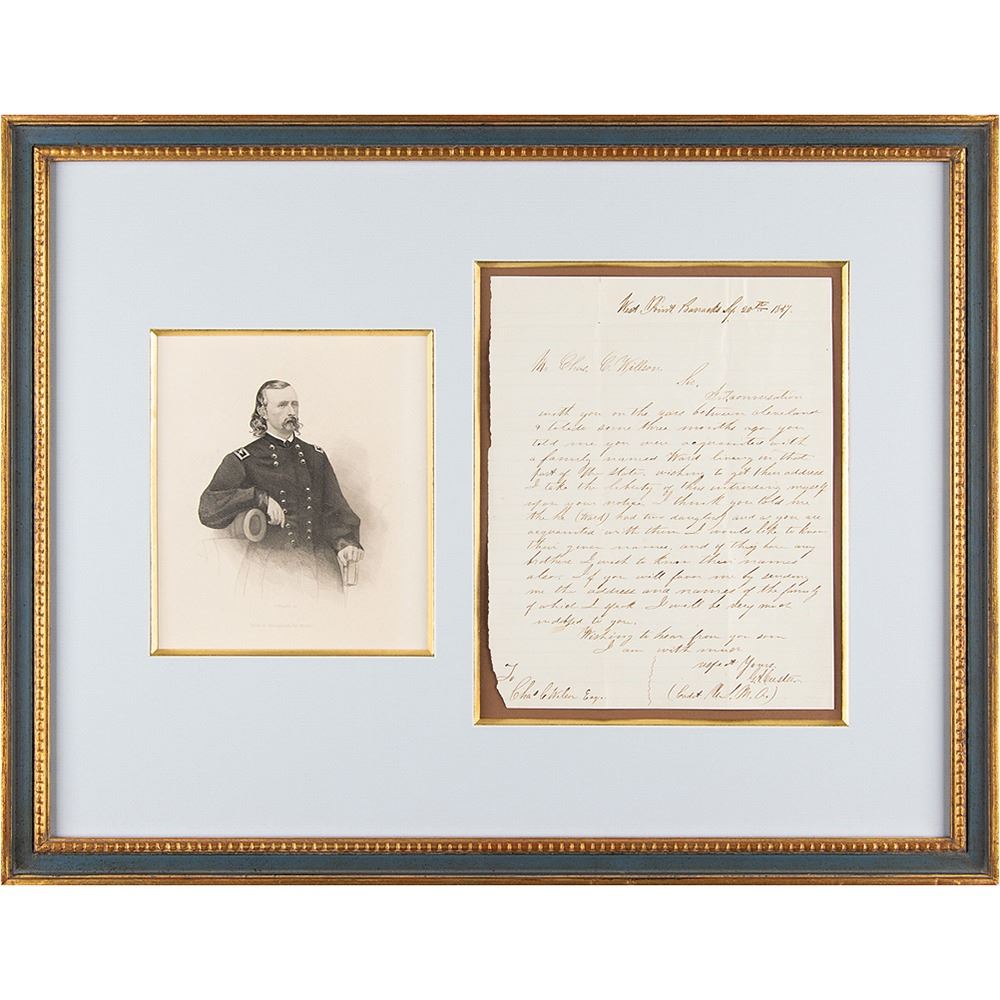 West Point Barracks Sp. 20th 1857.
Mr. Chas. C. Willson
Sir,
In conversation
with you on the cars between Cleveland
& Toledo some three months ago you
told me you were acquainted with
a family named Ward living in that
part of the state, wishing to get their address
I take the liberty of thus intruding myself
upon your notice. I think you told me
the he (Ward) had two daughters and as you are
acquainted with them I would like to know
their given names, and if they have any
brothers I wish to know their names
also. If you will favor me by sending
me the address and names of the family
of which I speak I will be very much
indebted to you.
Wishing to hear from you soon
I am with much
respect Yours,
G A Custer
(Cadet U. S. M. A.)
To
Chas C Wilson Esq.